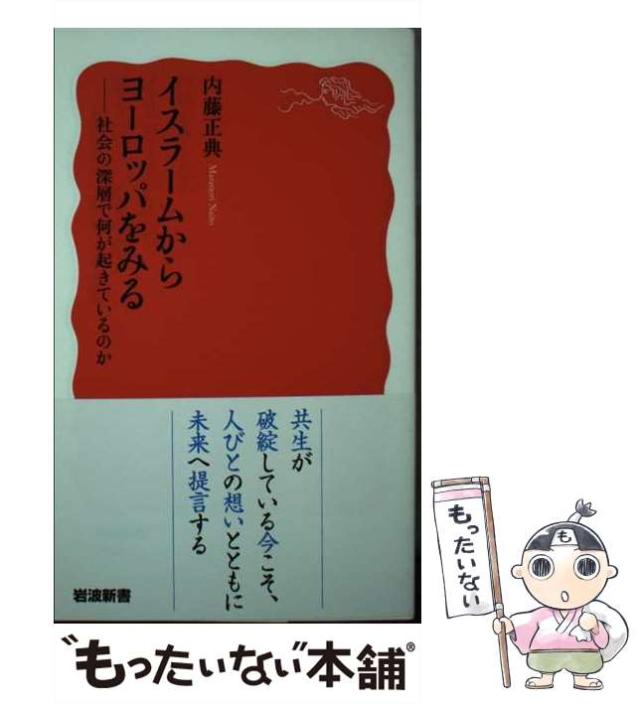 イスラームから
ヨーロッパをみる
――社会の深層で何が起きているのか
内藤正典
Masanori Naito
共生が
破綻している今こそ、
人びとの想いとともに
未来へ提言する
岩波新書
“もったいない”本舗®
も
もったいない